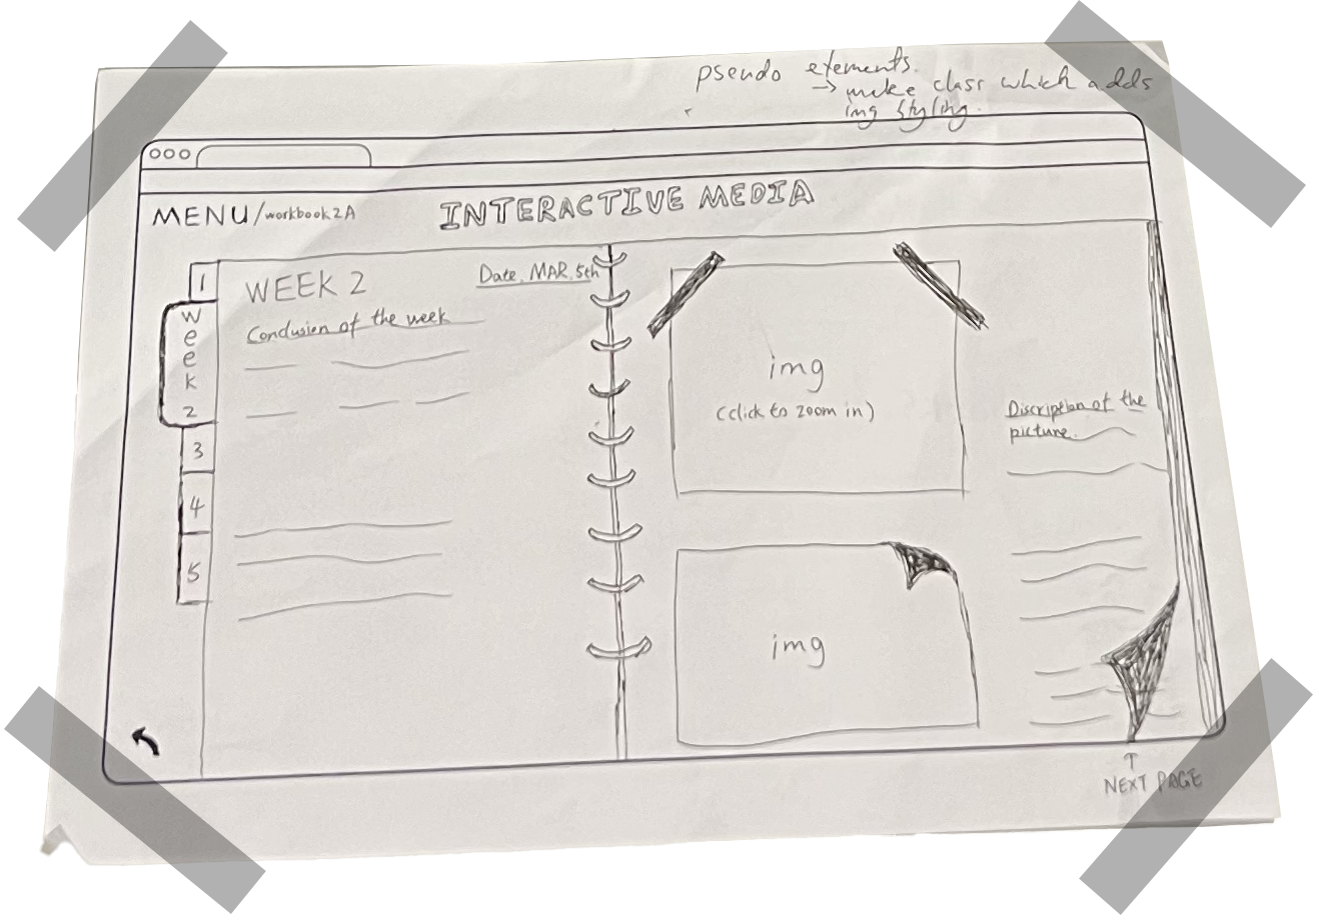 pseudo elements.
→ make class which adds
img styling.
MENU/workbook2A
INTERACTIVE MEDIA
1
WEEK 2
Date. MAR. 5th
Conclusion of the week
Week 2
3
4
5
img
(click to zoom in)
Discription of the
picture.
img
↑
NEXT PAGE